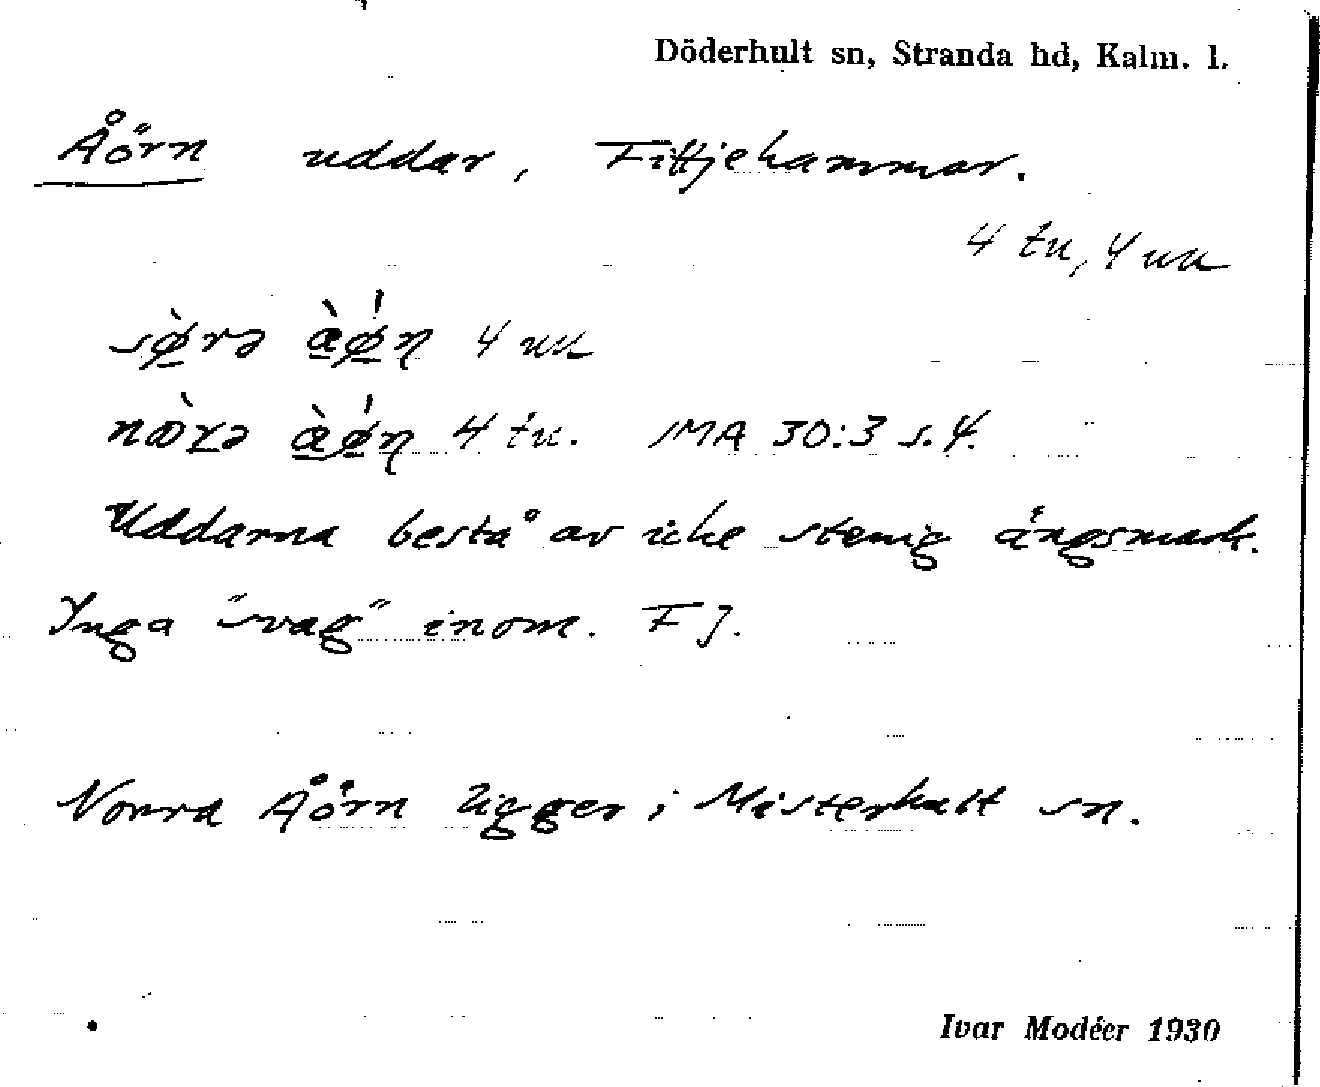 Döderhult sn, Stranda hd, Kalm. l.
Åörn uddar, Fittjehammar.
4 tu, 4 uu
sø̀rə àǿn 4 uu
4 tu. MA 30:3 s. 4.
Uddarna bestå av icke stenig ängsmark.
Inga "svag" inom. FJ.
Norra Åörn ligger i Misterhult sn.
Ivar Modéer 1930